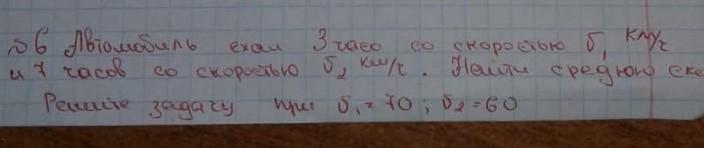 №6 Автомобиль ехал 3 часа со скоростью v₁ км/ч
и 7 часов со скоростью v₂ км/ч. Найти среднюю ско
Решите задачу при v₁=70; v₂=60